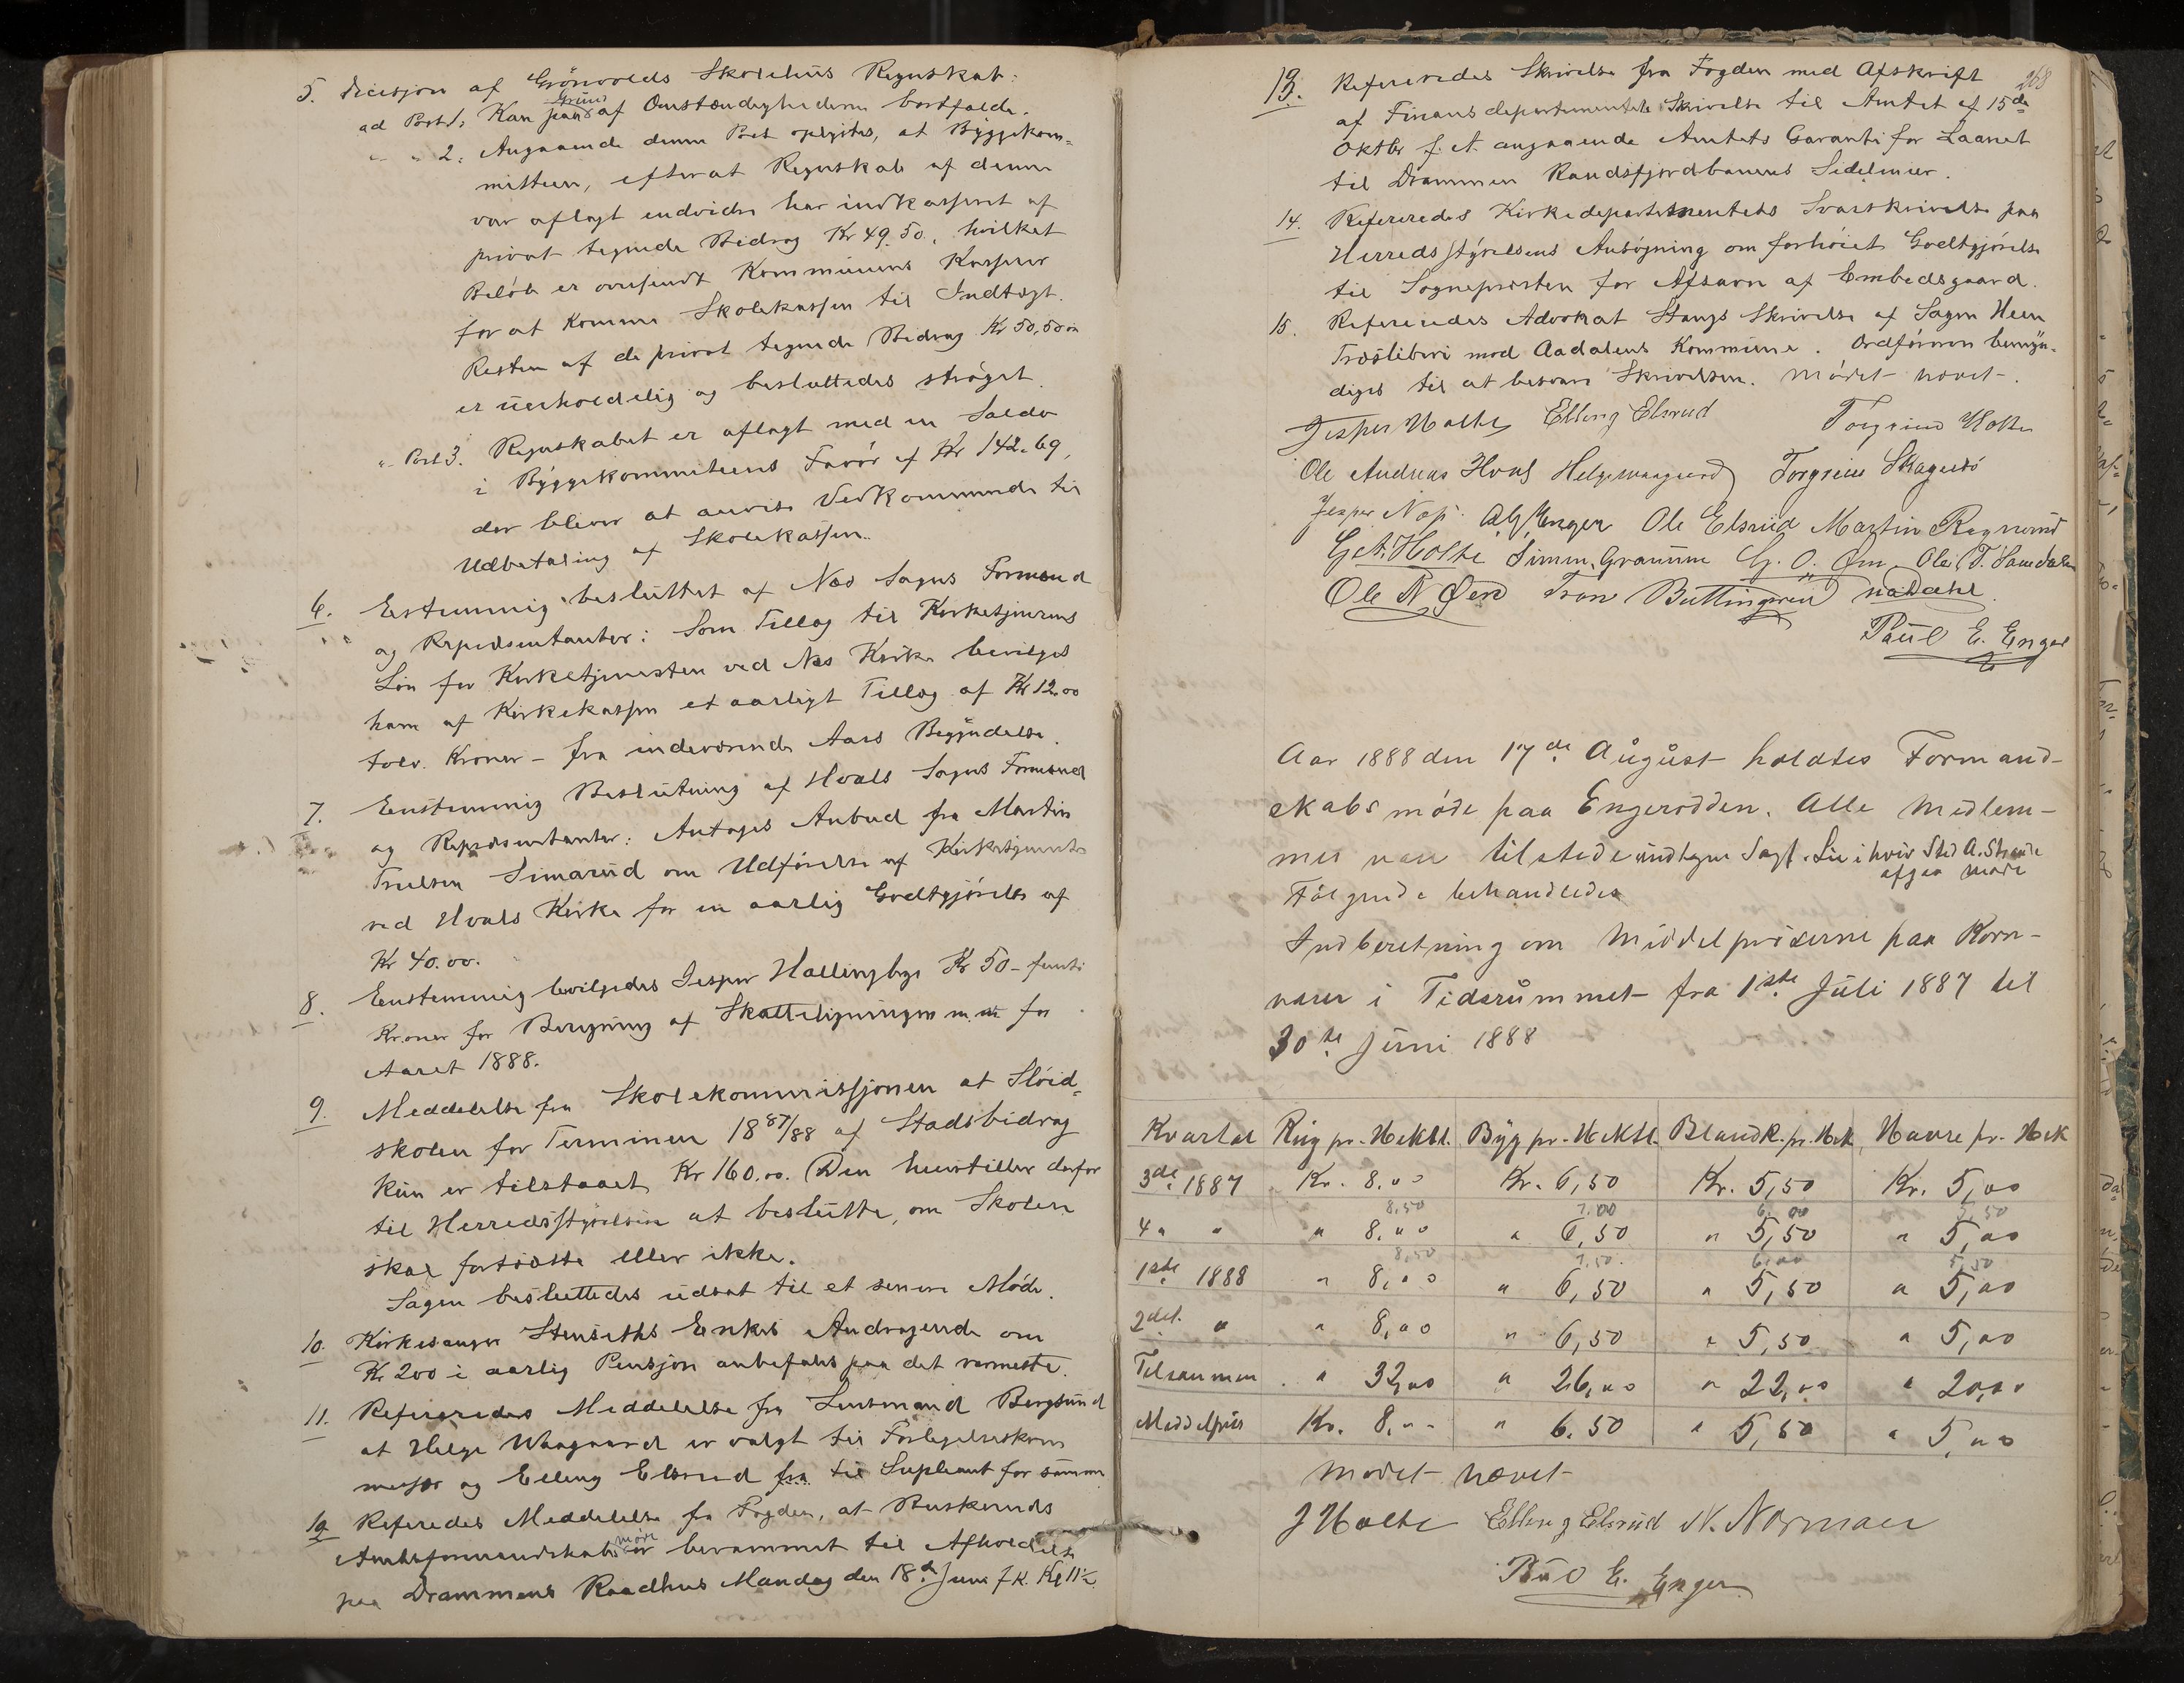 5. Decisjon af Grönvolds Skolehus Regnskab:
ad Post 1, Kan paa Grund af Omstændighederne bortfalde.
" " 2: Angaaende denne Post oplystes, at Byggekom-
mitteen, efterat Regnskab af denne
var aflagt endvidre har indkasseret af
privat tegnede Bidrag Kr 49.50, hvilket
Beløb er oversendt Kommunens Kasserer
for at komme Skolekassen til Indtægt.
Resten af de privat tegnede Bidrag Kr 50,50
er uerholdelig og besluttedes strøget.
" Post 3. Regnskabet er aflagt med en Saldo
i Byggekommiteens Favør af Kr 142.69,
der bliver at anvise Vedkommende til
Udbetaling af Skolekassen.
6. Enstemmig besluttet af Næs Sogns Formænd
og Repræsentanter: Som Tillæg til Kirketjenerens
Løn for Kirketjenesten ved Næs Kirke bevilges
ham af Kirkekassen et aarligt Tillæg af Kr 12.00
tolv Kroner – fra indeværende Aars Begyndelse.
7. Enstemmig Beslutning af Hvals Sogns Formænd
og Repræsentanter: Antages Anbud fra Martin
Truelsen Simarud om Udførelse af Kirketjeneste
ved Hvals Kirke for en aarlig Godtgjørelse af
Kr 40.00.
8. Enstemmig bevilgedes Jesper Hallingby Kr 50 – femti
Kroner for Beregning af Skatteligningen m. m for
Aaret 1888.
9. Meddelelse fra Skolekommissjonen at Sløid-
skolen for Terminen 1887/88 af Stadsbidrag
kun er tilstaaet Kr 160.00. Den henstiller derfor
til Herredsstyrelsen at beslutte, om Skolen
skal fortsætte eller ikke.
Sagen besluttedes udsat til et senere Møde.
10. Kirkesanger Stenseths Enkes Andragende om
Kr 200 i aarlig Pensjon anbefales paa det varmeste.
11. Refereredes Meddelelse fra Lensmand Bergsund
at Helge Waagaard er valgt til Forligelseskom
missær og Elling Elsrud fra til Supleant for samme
12 Referedes Meddelelse fra Fogden, at Buskeruds
Amtsformandskabsmøde er berammet til Afholdelse
paa Drammens Raadhus Mandag den 18de Juni f K. Kl 11½.
268
13. Refereredes Skrivelse fra Fogden med Afskrift
af Finansdepartementets Skrivelse til Amtet af 15de
Oktbr f. A. angaaende Amtets Garanti for Laanet
til Drammen Randsfjordbanens Sidelinier.
14. Refereredes Kirkedepartementets Svarskrivelse paa
Herredsstyrelsens Ansøgning om forhøiet Godtgjørelse
til Sognepresten for Afsavn af Embedsgaard.
15. Refereredes Advokat Stangs Skrivelse af Sagen Heen
Træsliberi mod Aadalens Kommune. Ordføreren bemyn-
diges til at besvare Skrivelsen. Mødet hævet.
Jesper Holte Elling Elsrud Torgrim Holte
Ole Andreas Hval Helge Waagaard Torgrim Skagnæs
Jesper Næs. AG Enger Ole Elsrud Martin Bagnerud
G. A. Holte Simen Granum G. O. Øen Ole T. Samdalen
Ole N Øen Iver Buttingsrud
Paul E. Enger
Aar 1888 den 17de August holdtes Formand-
skabsmøde paa Engerodden. Alle Medlem-
mer var tilstede undtagen Sagf. Lie i hvis Sted A. Strande
afgav møde
Følgende behandledes
Indberetning om Middelpriserne paa Korn-
varer i Tidsrummet fra 1ste Juli 1887 til
30te Juni 1888
Kvartal Rug pr. Hektl. Byg pr. Hektl. Blandk. pr. Hek Havre pr. Hek
3de 1887 Kr. 8.00 Kr. 6,50 Kr. 5,50 Kr. 5,00
8,50 7.00 6,00 5,50
4 " " " 8.00 " 6,50 " 5,50 " 5,00
8,50 7,50. 6,00 5,50
1ste 1888 " 8,00 " 6,50 " 5,50 " 5,00
2det. " " 8,00 " 6,50 " 5,50 " 5,00
Tilsammen " 32,00 " 26,00 " 22,00 " 20,00
Meddelpris Kr. 8,00 " 6.50 " 5,50 " 5,00
Mødet hævet
J Holte Elling Elsrud N. Norman
Paul E. Enger